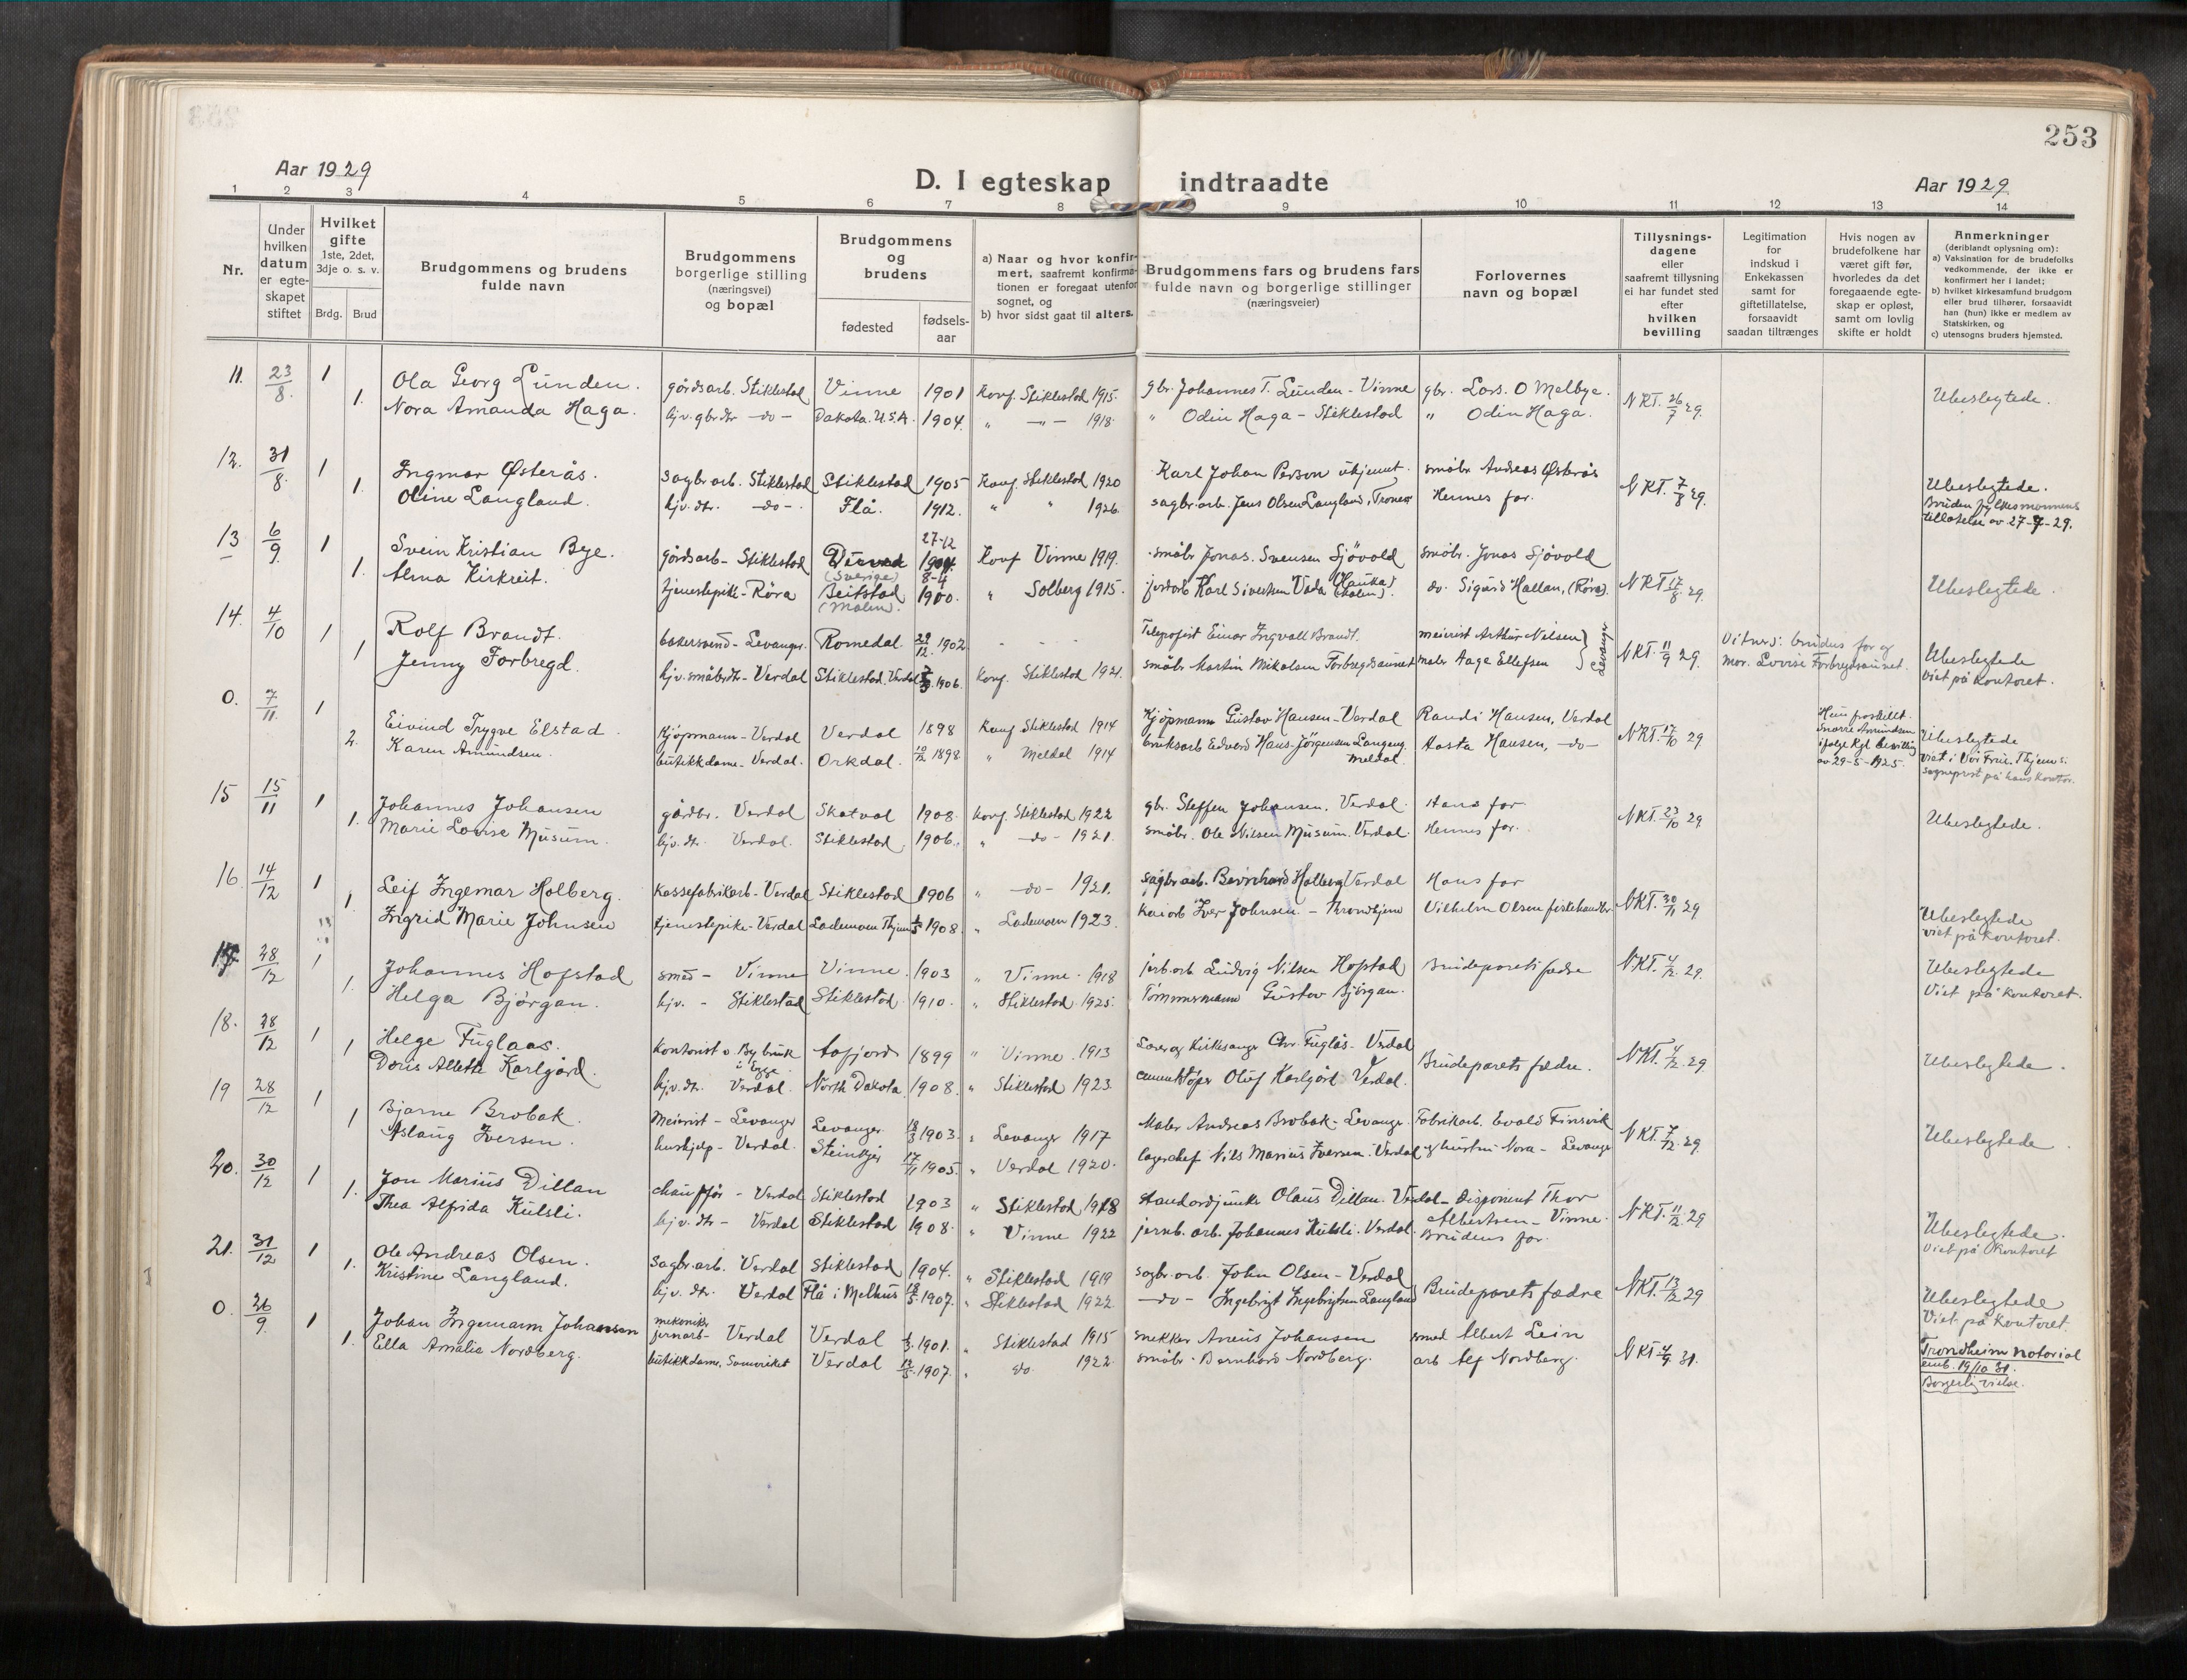 253
Aar 1929
D. I egteskap indtraadte
Aar 1929
1 2 3 4 5 6 7 8 9 10 11 12 13 14
Nr.
Under hvilken datum er egteskapet stiftet
Hvilket gifte 1ste, 2det, 3dje o. s. v.
Brdg. Brud
Brudgommens og brudens fulde navn
Brudgommens borgerlige stilling (næringsvei) og bopæl
Brudgommens og brudens
fødested
fødsels-aar
a) Naar og hvor konfirmert, saafremt konfirmationen er foregaat utenfor sognet, og
b) hvor sidst gaat til alters.
Brudgommens fars og brudens fars fulde navn og borgerlige stillinger (næringsveier)
Forlovernes navn og bopæl
Tillysnings-dagene eller saafremt tillysning ei har fundet sted efter hvilken bevilling
Legitimation for indskud i Enkekassen samt for giftetillatelse, forsaavidt saadan tiltrænges
Hvis nogen av brudefolkene har været gift før, hvorledes da det foregaaende egteskap er opløst, samt om lovlig skifte er holdt
Anmerkninger (deriblandt oplysning om):
a) Vaksination for de brudefolks vedkommende, der ikke er konfirmert her i landet;
b) hvilket kirkesamfund brudgom eller brud tilhører, forsaavidt han (hun) ikke er medlem av Statskirken, og
c) utensogns bruders hjemsted.
11. 23/8 1 Ola Georg Lunden. gårdsarb. Stiklestad Vinne 1901 Konf. Stiklestad 1915. gbr. Johannes T. Lunden - Vinne gbr. Lars. O Melbye. NKT. 26/7 29. Ubeslegtede.
1. Nora Amanda Haga. hjv. gbr.dtr -do- Dakota. U.S.A. 1904. " -"- 1918. " Odin Haga - Stiklestad " Odin Haga.
12. 31/8 1 Ingmar Østerås. Sagbr.arb. Stiklestad Stiklestad 1905 Konf. Stiklestad 1920 Karl Johan Person ukjent. småbr. Andreas Østerås NKT. 7/8 29. Ubeslegtede.
1. Oline Langland. hjv. dtr. -do-. Flå. 1912. " " 1926. sagbr.arb. Jens Olsen Langland, Trones Hennes far. Bruden fylkesmannens
tillatelse av 27-7-29.
13 6/9 1 Svein Kristian Bye. gårdsarb - Stiklestad (Sverige) 27-12 1904. Konf Vinne 1919. småbr. Jonas. Svensen Sjövold småbr. Jonas Sjövold NKT 17/8 29. Ubeslegtede.
1. Alma Kirkreit. tjenestepike - Röra Beitstad (Malm). 8-4 1900. " Solberg 1915. jordarb Karl Sivertsen Vada do. Sigurd Hallan, (Röra).
14. 4/10 1 Rolf Brandt. bakersvend - Levanger. Romedal. 29/12 1902 - - - Einar Ingvall Brandt. meierist Arthur Nilsen Levanger NKT. 11/9 29. brudens far og Ubeslegtede
1 Jenny Forbregd. hjv. småbr.dtr - Verdal Stiklestad. Verdal 1906. Konf. Stiklestad 1921. småbr. Martin Mikalsen Forbregdsaunet maler Aage Ellefsen mor. Lovise Forbregdsaunet. viet på kontoret.
0. 7/11. 1 Eivind Trygve Elstad. Kjöpmann - Verdal Verdal 1898 Konf Stiklestad 1914 Kjöpmann Gustav Hansen - Verdal Randi Hansen, Verdal NKT. 17/10 29 Hun fraskillt Snorre Amundsen ifölge Kgl. bevilling av 29-5-1925. Ubeslegtede
2. Karen Amundsen. butikkdame - Verdal. Orkdal. 1898. " Meldal 1914 bruksarb Edvard Hans-Jörgensen Langeng. Meldal. Aasta Hansen, -do- viet i Vår Frue. Thjem s. sogneprest på hans kontor.
15 15/11 1 Johannes Johansen gårdbr. Verdal Skatval 1908. Konf. Stiklestad 1922 gbr. Steffen Johansen. Verdal. Hans far. NKT. 23/10 29. Ubeslegtede.
1. Marie Lovise Musum. hjv. dtr. Verdal. Stiklestad. 1906. " -do- 1921. småbr. Ole Nilsen Musum. Verdal. Hennes far.
16. 14/12 1 Leif Ingemar Holberg. Kassefabrikarb - Verdal Stiklestad 1906 " -do- 1921. sagbr.arb. Bernhard Holberg Verdal Hans far NKT. 30/11 29 Ubeslegtede
1. Ingrid Marie Johnsen tjenestepike - Verdal Lademoen Thjem 1908. " Lademoen 1923. Kaiarb Iver Johnsen - Trondhjem Vilhelm Olsen fiskehandler. viet på kontoret.
17. 28/12 1 Johannes Hofstad smed - Vinne Vinne. 1903 " Vinne. 1918 jernb.arb Ludvig Nilsen Hofstad Brudeparets fædre NKT. 4/12 29. Ubeslegtede
1. Helga Bjørgan. hjv. - Stiklestad Stiklestad. 1910. " Stiklestad. 1925. Tömmermann Gustav Björgan. Viet på kontoret.
18. 28/12 1 Helge Fuglaas. Kontorist v Bybruk i Egge. Aafjord 1899 " Vinne. 1913 Lærer og Kirkesanger Chr. Fuglås - Verdal Brudeparets fædre. NKT. 4/12. 29 Ubeslegtede.
1 Doris Alette Karlgård. hjv. dtr. Verdal. North Dakota 1908. " Stiklestad 1923. Oluf Karlgård. Verdal.
19 28/12 1 Bjarne Brobak. Meierist - Levanger Levanger 18/3 1903. " Levanger 1917 Maler Andreas Brobak - Levanger. Fabrikarb. Evald Finsvik NKT. 7/12 29. Ubeslegtede.
1 Aslaug Iversen. hushjelp - Verdal. Steinkjer 17/11 1905. " Verdal 1920. lagerchef Nils Marius Iversen. Verdal og hustru Nora - Levanger
20. 30/12 1 Jon Marius Dillan chauffør - Verdal Stiklestad 1903 " Stiklestad 1918 Olaus Dillan. Verdal - disponent Thor Albertsen - Vinne. NKT. 11/12. 29 Ubeslegtede.
1. Thea Alfrida Kulsli. hjv. dtr - Verdal Stiklestad 1908. " Vinne 1922 jernb. arb. Johannes Kulsli. Verdal. Brudens far. Viet på kontoret
21. 31/12 1 Ole Andreas Olsen. Sagbr.arb. Verdal Stiklestad 1904. " Stiklestad 1919 sagbr.arb. John Olsen - Verdal Brudeparets fædre NKT. 13/12 29 Ubeslegtede
1. Kristine Langland. hjv. dtr. Verdal Flå i Melhus 1907. " Stiklestad 1922 -do- Ingebrigt Ingebrigtsen Langland Viet på kontoret.
0. 26/9. 1 Johan Ingemann Johansen mekanikr. jernarb - Verdal Verdal 1901. " Stiklestad 1915 snekker Aneus Johansen smed Albert Lein NKT 4/9 31. Trondheim notorial
1. Ella Amalie Nordberg. butikkdame, Verdal 1907. " do. 1922. småbr. Bernhard Nordberg. arb Alf Nordberg. emb. 19/10 31.
Borgerlig vielse.